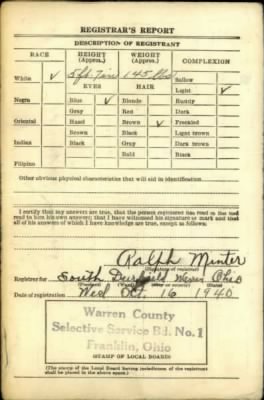 REGISTRAR'S REPORT
DESCRIPTION OF REGISTRANT
RACE HEIGHT (Approx.) WEIGHT (Approx.) COMPLEXION
White ✓ 5 ft 7 in 145 lbs Sallow
EYES HAIR Light ✓
Negro Blue ✓ Blonde Ruddy
Gray Red Dark
Oriental Hazel Brown ✓ Freckled
Brown Black Light brown
Indian Black Gray Dark brown
Bald Black
Filipino
Other obvious physical characteristics that will aid in identification
I certify that my answers are true; that the person registered has read or has had
read to him his own answers; that I have witnessed his signature or mark and that
all of his answers of which I have knowledge are true, except as follows:
Ralph Minter
(Signature of registrar)
Registrar for South Warren Ohio
(Precinct) (Ward) (City or county) (State)
Date of registration Wed Oct. 16 1940
Warren County
Selective Service Bd. No. 1
Franklin, Ohio
STAMP OF LOCAL BOARD
(The stamp of the Local Board having jurisdiction of the registrant
shall be placed in the above space.)